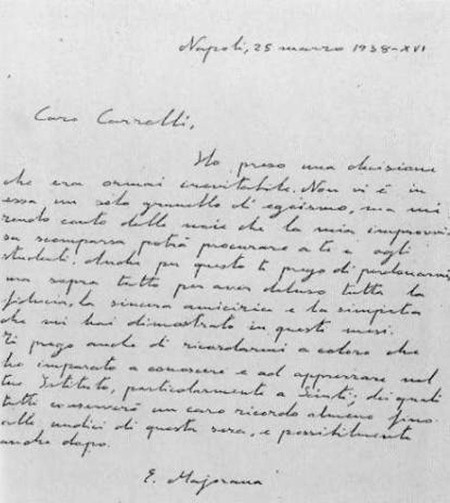 Napoli, 25 marzo 1938-XVI
Caro Carrelli,
Ho preso una decisione
che era ormai inevitabile. Non vi è in
essa un solo granello di egoismo, ma mi
rendo conto delle noie che la mia improvvi
sa scomparsa potrà procurare a te e agli
studenti. Anche per questo ti prego di perdonarmi,
ma sopra tutto per aver deluso tutta la
fiducia, la sincera amicizia e la simpatia
che mi hai dimostrato in questi mesi.
Ti prego anche di ricordarmi a coloro che
ho imparato a conoscere e ad apprezzare nel
tuo Istituto, particolarmente a Sciuti; dei quali
tutti conserverò un caro ricordo almeno fino
alle undici di questa sera, e possibilmente
anche dopo.
E. Majorana